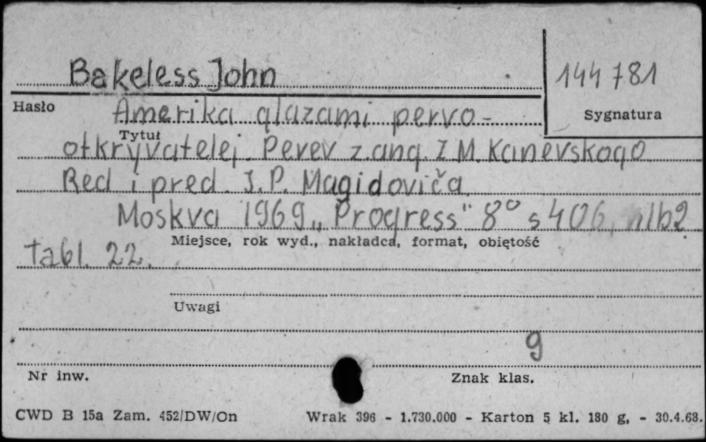 Bakeless John
144781
Hasło
Sygnatura
Amerika glazami pervo-
Tytuł
otkryvatelej. Perev z ang. Z M. Kanevskogo
Red i pred. I. P. Magidoviča
Moskva 1969 „Progress" 8° s 406, nlb 2
Miejsce, rok wyd., nakładca, format, objętość
tabl. 22.
Uwagi
g
Nr inw.
Znak klas.
CWD B 15a Zam. 452/DW/On Wrak 396 - 1.730.000 - Karton 5 kl. 180 g. - 30.4.68.